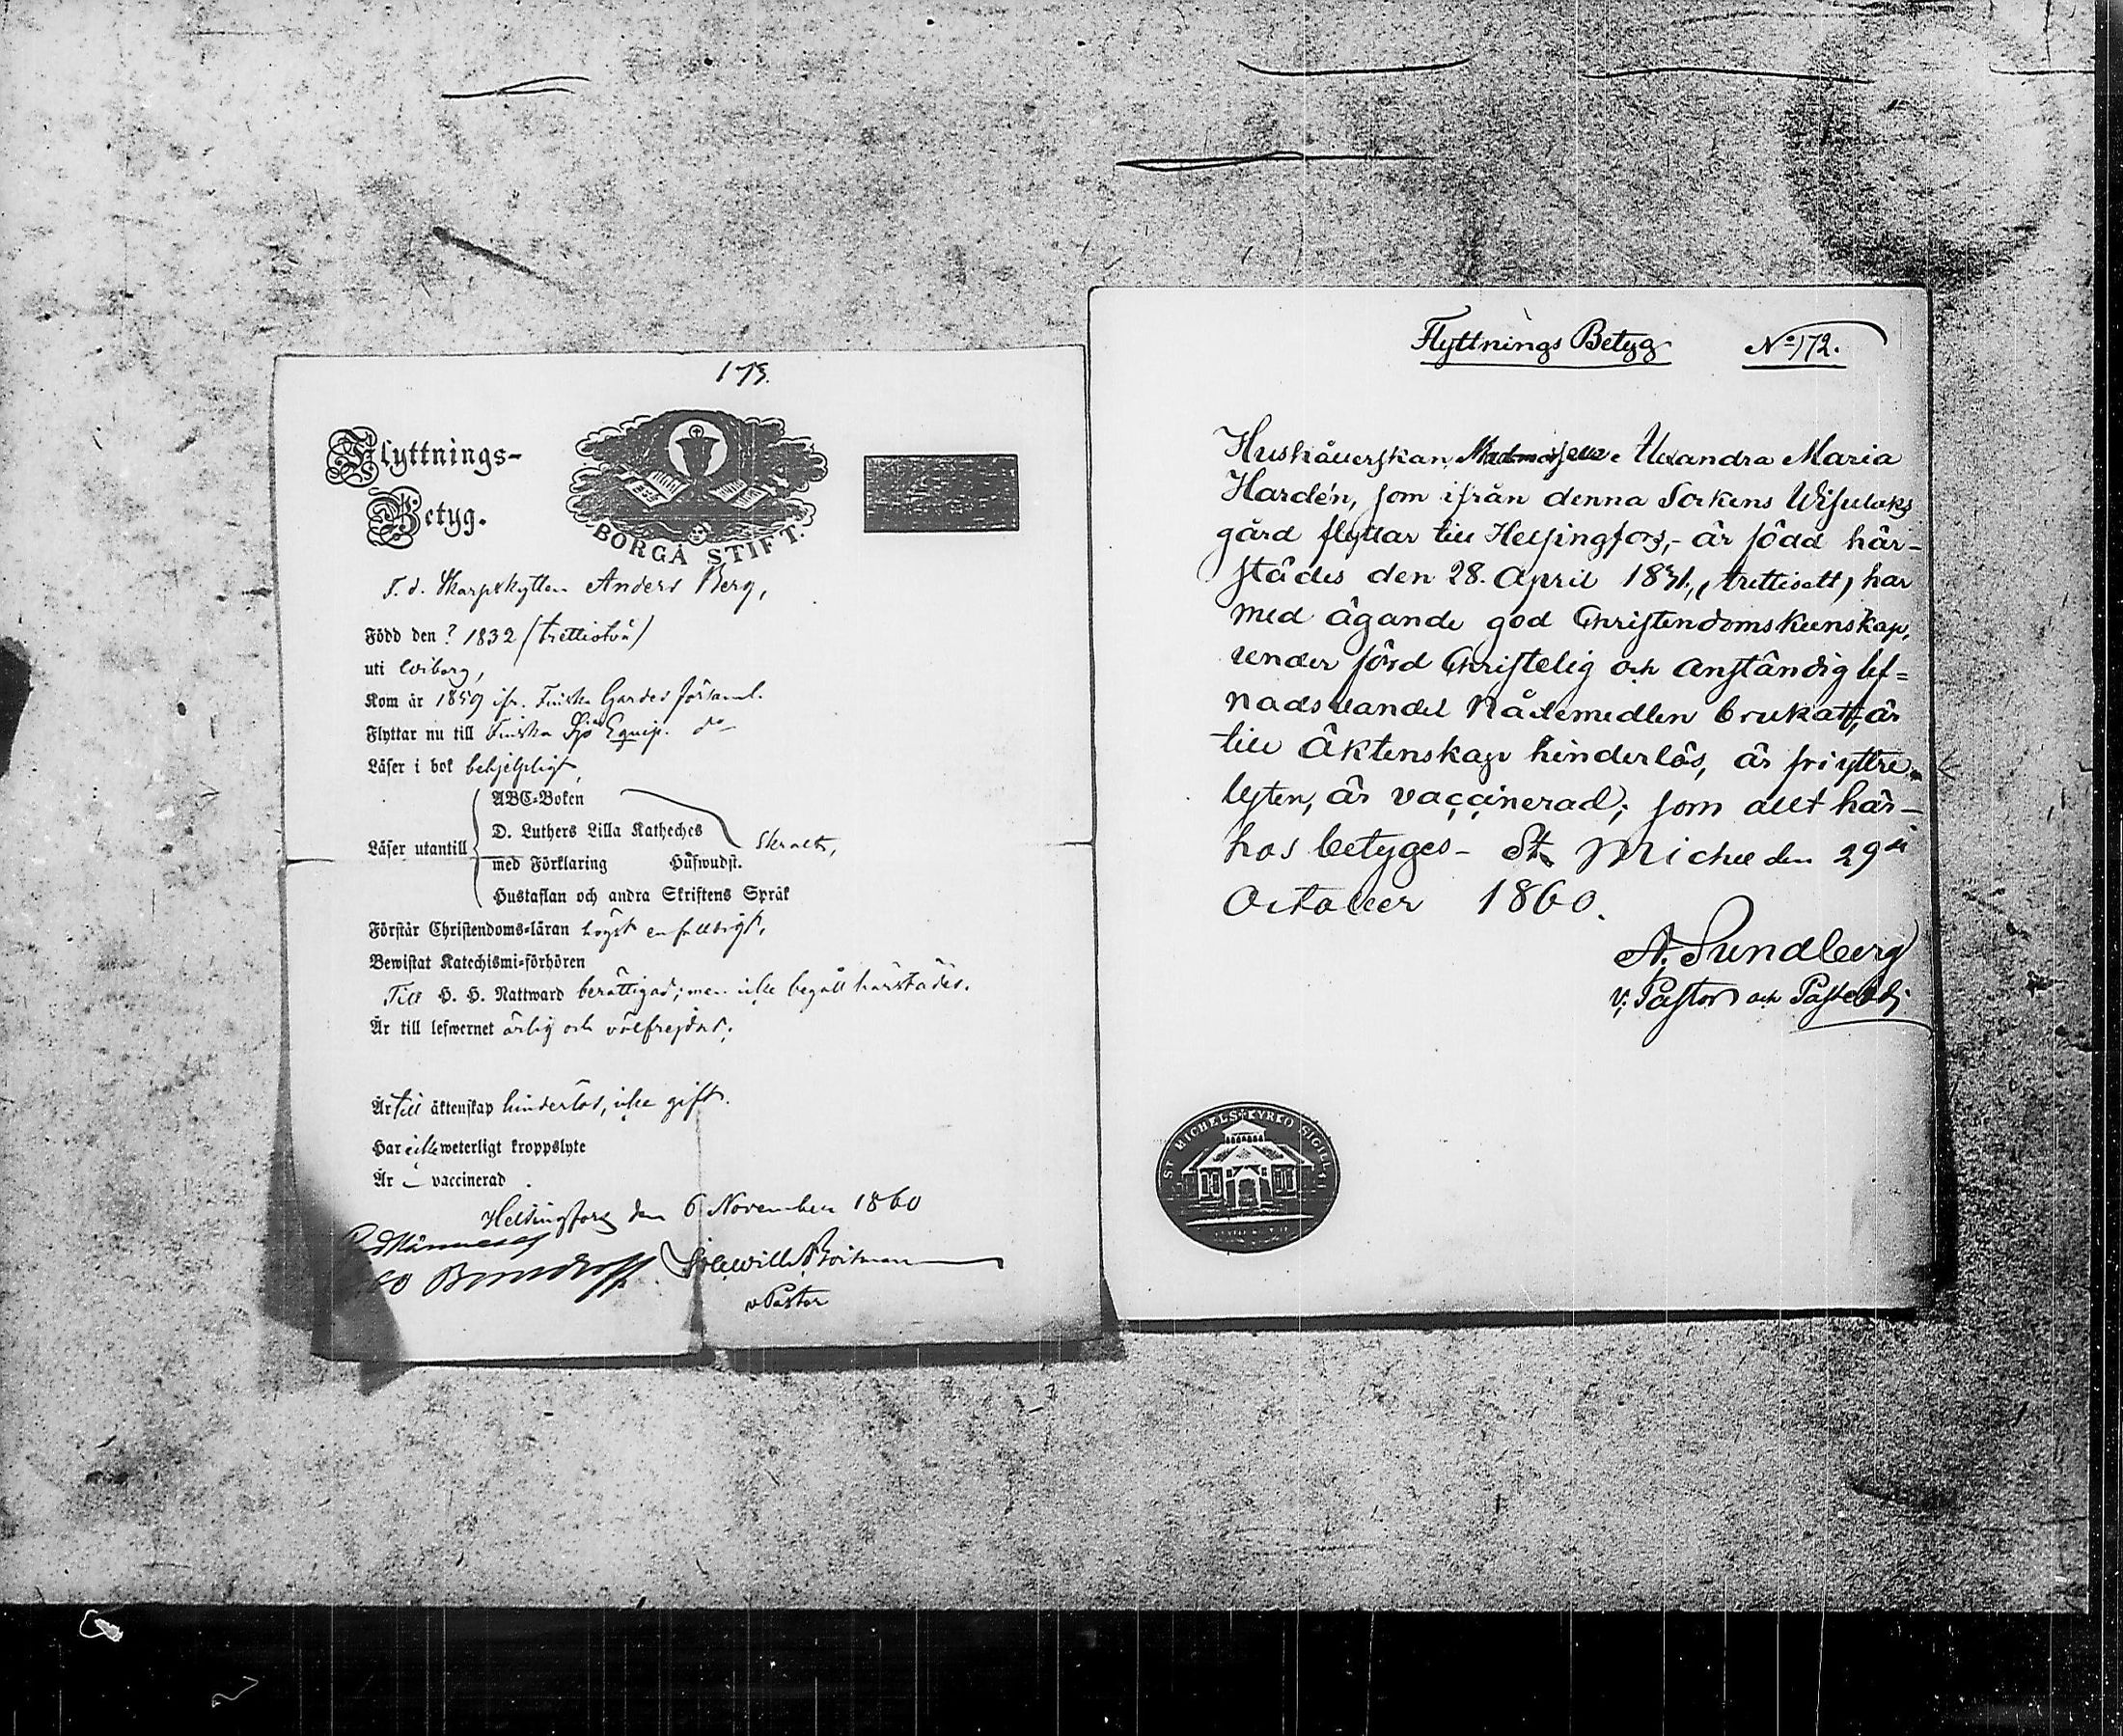 173.
Flyttnings-
Betyg.
BORGÅ STIFT.
F. d. Skarpskytten Anders Berg,
Född den ? 1832 (trettiotvå)
uti Wiborg,
Kom år 1859 ifr. Finska Gardes församl.
Flyttar nu till Finska Sjö Equip. do
Läser i bok behjelpligt,
ABC-Boken
D. Luthers Lilla Katheches
Läser utantill
med Förklaring Hufwudst.
Hustaflan och andra Skriftens Språk
Förstår Christendoms-läran högst enfaldigt,
Bewistat Katechismi-förhören
Till H. H. Nattward berättigad; men icke begått härstädes.
Är till lefwernet ärlig och välfrejdad;
Är till äktenskap hinderlös, icke gift.
Har icke weterligt kroppslyte
Är vaccinerad
Helsingfors den 6 November 1860
v. Pastor
Flyttnings Betyg No 172.
Hushållerskan Alexandra Maria
Hardén, som ifrån denna Sockens Wisulaks
gård flyttar till Helsingfors,- är född här-
städes den 28. April 1831, (trettiett) har
med ägande god Christendomskunskap,
under förd Christelig och anständig lef=
nadsvandel Nådemedlen brukat, är
till äktenskap hinderlös, är fri yttre
lyten, är vaccinerad; som allt här-
hos betyges - St Michel den 29
October 1860.
A. Sundberg
v. Pastor och
ST MICHELS KYRKO SIGILL